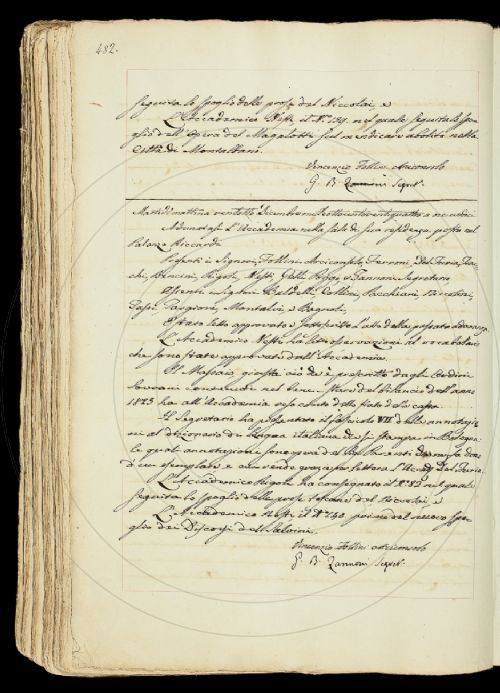 482.
seguita lo spoglio delle prose del Niccolai, e
L'Accademico Nesti il N.º 139. nel quale seguita lo spo-
glio dell'opera del Magalotti sul mendicare abolito nella
Città di Montalbano.
Vincenzio Follini Arciconsolo
G. B. Zannoni Segret.º
Martedì mattina ventotto Decembre milleottocentoventiquattro a ore undici
Adunatasi l'Accademia nella sala di sua residenza, posta nel
Palazzo Riccardi
Presenti i Signori, Follini Arciconsolo, Ferroni, Del Furia, Fiac-
chi, Rigoli, Nesti, Poggi e Zannoni Segretario
Assenti i Signori Collini, Pacchiani, Niccolini,
Targioni, Montalvi, e Bagnoli.
È stato letto approvato e sottoscritto l'atto della passata adunanza.
L'Accademico Nesti ha letto osservazioni al vocabolario
che sono state approvate dall'Accademia.
Il Massaio, giusta ciò che è prescritto dagli Ordini
Sovrani dell'anno
1825 ha all'Accademia reso conto dello stato di cassa.
Il Segretario ha presentato il fascicolo VII delle annotazio-
ni al dizionario della lingua italiana che si stampa in Bologna
le quali annotazioni sono opera del
d'un esemplare e scrivere lettera l'Accad. Del Furia.
L'Accademico Rigoli ha consegnato il N.º 83 nel quale
seguita lo spoglio delle prose toscane del Niccolai, e
L'Accademico Nesti il N.º 140. primo del nuovo spo-
glio dei Discorsi del Salvini.
Vincenzio Follini Arciconsolo
G. B. Zannoni Segret.º